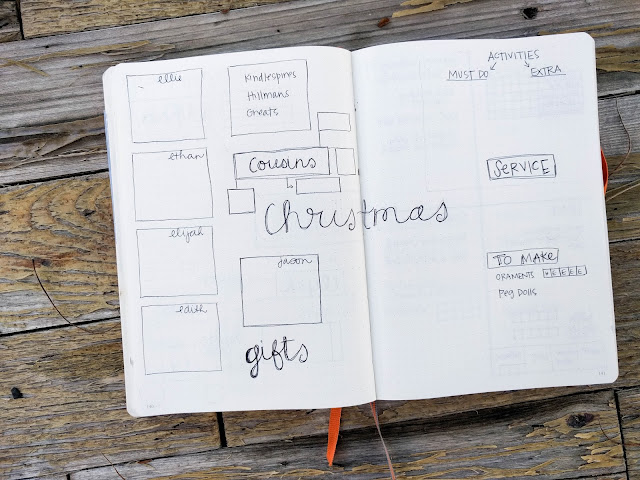 ellie
ethan
elijah
edith
Kindlespires
Hillmans
Greats
cousins
christmas
jason
gifts
ACTIVITIES
MUST DO
EXTRA
SERVICE
TO MAKE
ORAMENTS E E E E
Peg Dolls